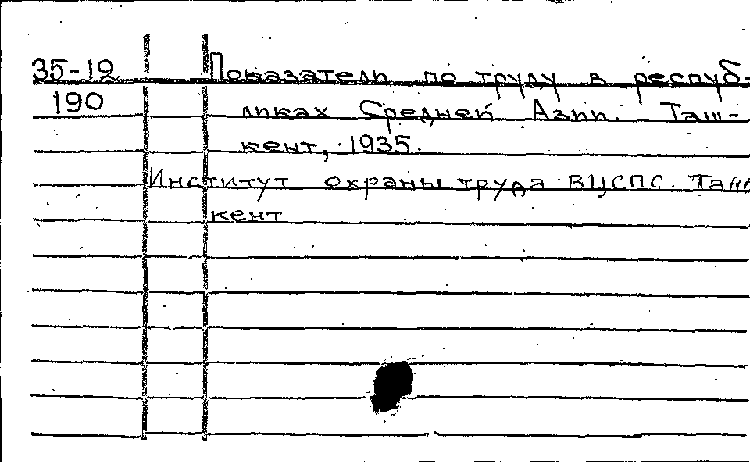 35-19 Показатель по труду в респуб-
190 ликах Средней Азии. Таш-
кент, 1935.
Институт охраны труда ВЦСПС. Таш
кент